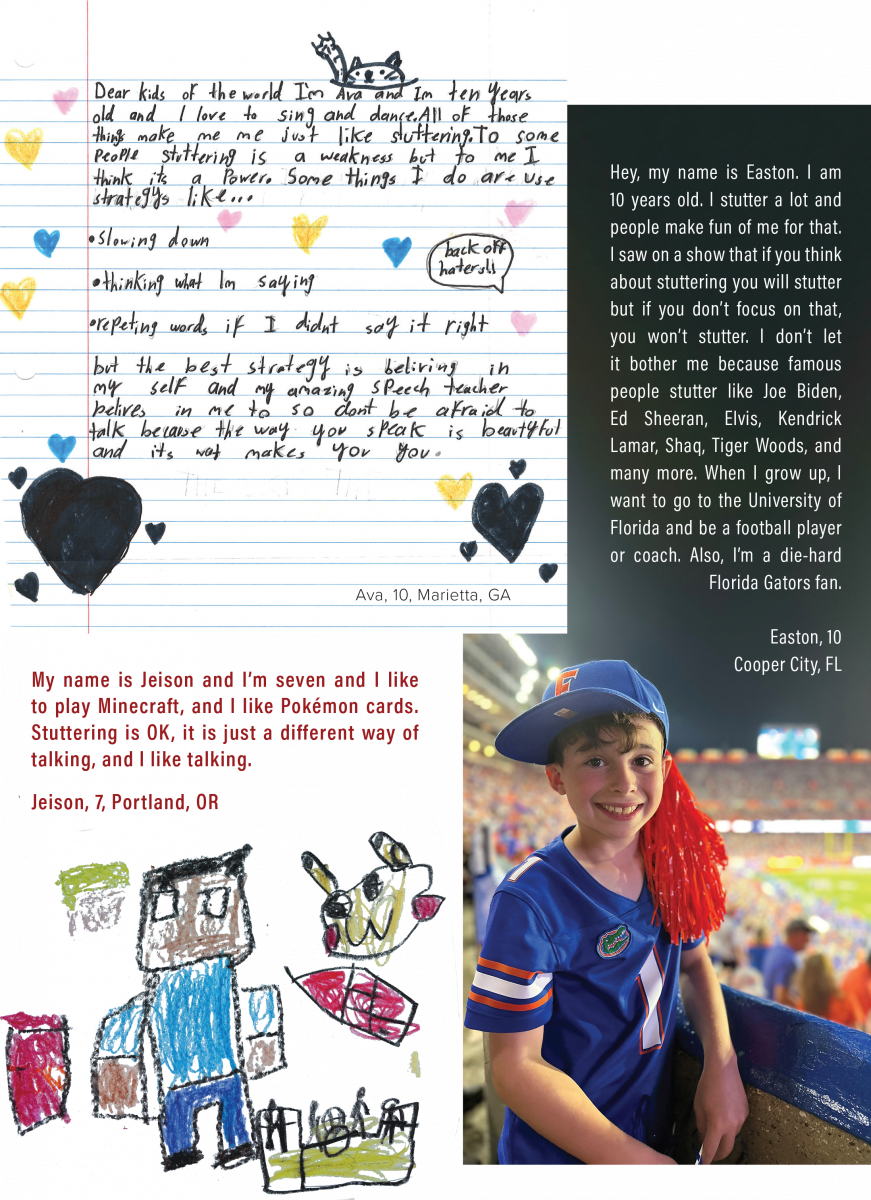 Dear kids of the world I'm Ava and Im ten years
old and I love to sing and dance. All of those
things make me me just like stuttering. To some
People stuttering is a weakness but to me I
think its a Power. Some things I do are use
strategys like...
•slowing down
back off
haters!!
•thinking what Im saying
•repeting words if I didnt say it right
but the best strategy is beliving in
my self and my amazing speech teacher
belives in me to so dont be afraid to
talk because the way you speak is beautyful
and its wat makes you you.
Ava, 10, Marietta, GA
Hey, my name is Easton. I am
10 years old. I stutter a lot and
people make fun of me for that.
I saw on a show that if you think
about stuttering you will stutter
but if you don't focus on that,
you won't stutter. I don't let
it bother me because famous
people stutter like Joe Biden,
Ed Sheeran, Elvis, Kendrick
Lamar, Shaq, Tiger Woods, and
many more. When I grow up, I
want to go to the University of
Florida and be a football player
or coach. Also, I'm a die-hard
Florida Gators fan.
Easton, 10
Cooper City, FL
My name is Jeison and I'm seven and I like
to play Minecraft, and I like Pokémon cards.
Stuttering is OK, it is just a different way of
talking, and I like talking.
Jeison, 7, Portland, OR
F
1
1